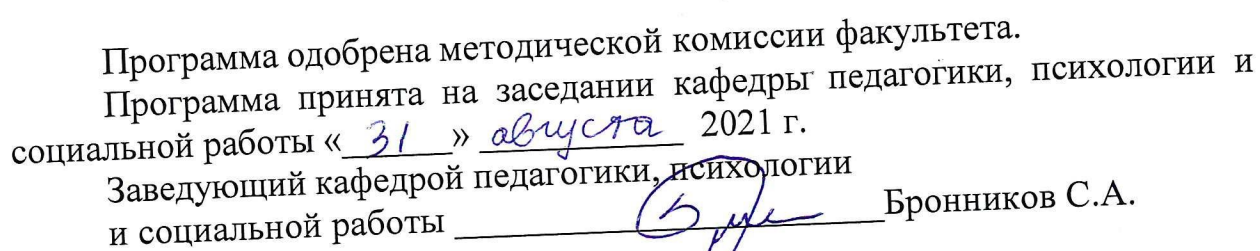 Программа одобрена методической комиссии факультета.
Программа принята на заседании кафедры педагогики, психологии и
социальной работы «31» августа 2021 г.
Заведующий кафедрой педагогики, психологии
и социальной работы Бронников С.А.